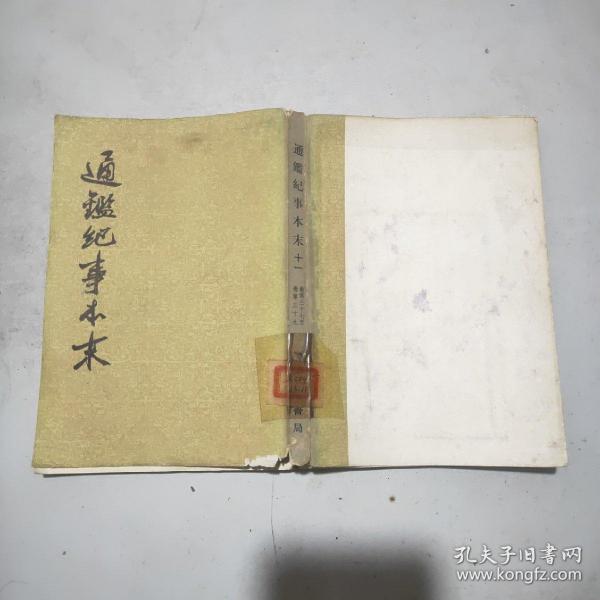 通鑑紀事本末
通鑑紀事本末 十一
卷第三十七至
卷第三十九
書局
孔夫子旧書网
www.kongfz.com